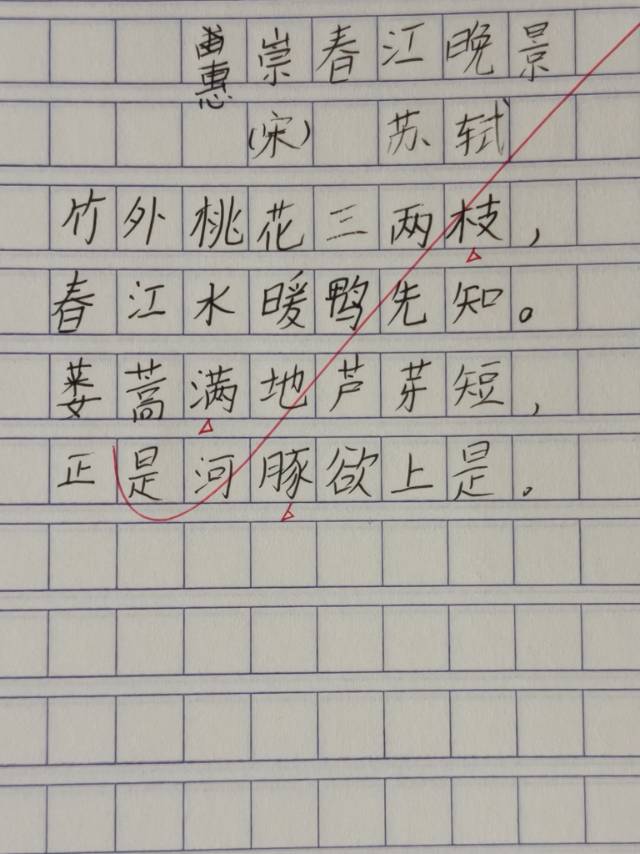 惠崇春江晚景
(宋) 苏轼
竹外桃花三两枝,
春江水暖鸭先知。
蒌蒿满地芦芽短,
正是河豚欲上是。